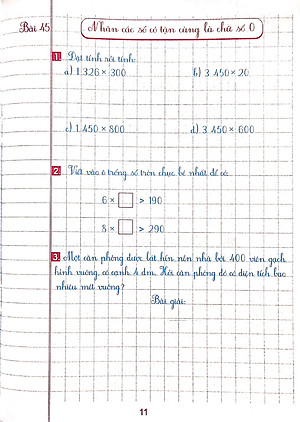 Bài 45
Nhân các số có tận cùng là chữ số 0
1. Đặt tính rồi tính:
a) 1 326 × 300
b) 3 450 × 20
c) 1 450 × 800
d) 3 450 × 600
2. Viết vào ô trống số tròn chục bé nhất để có:
6 × □ > 190
8 × □ > 290
3. Một căn phòng được lát kín nền nhà bởi 400 viên gạch
hình vuông, có cạnh 4 dm. Hỏi căn phòng đó có diện tích bao
nhiêu mét vuông?
Bài giải:
11